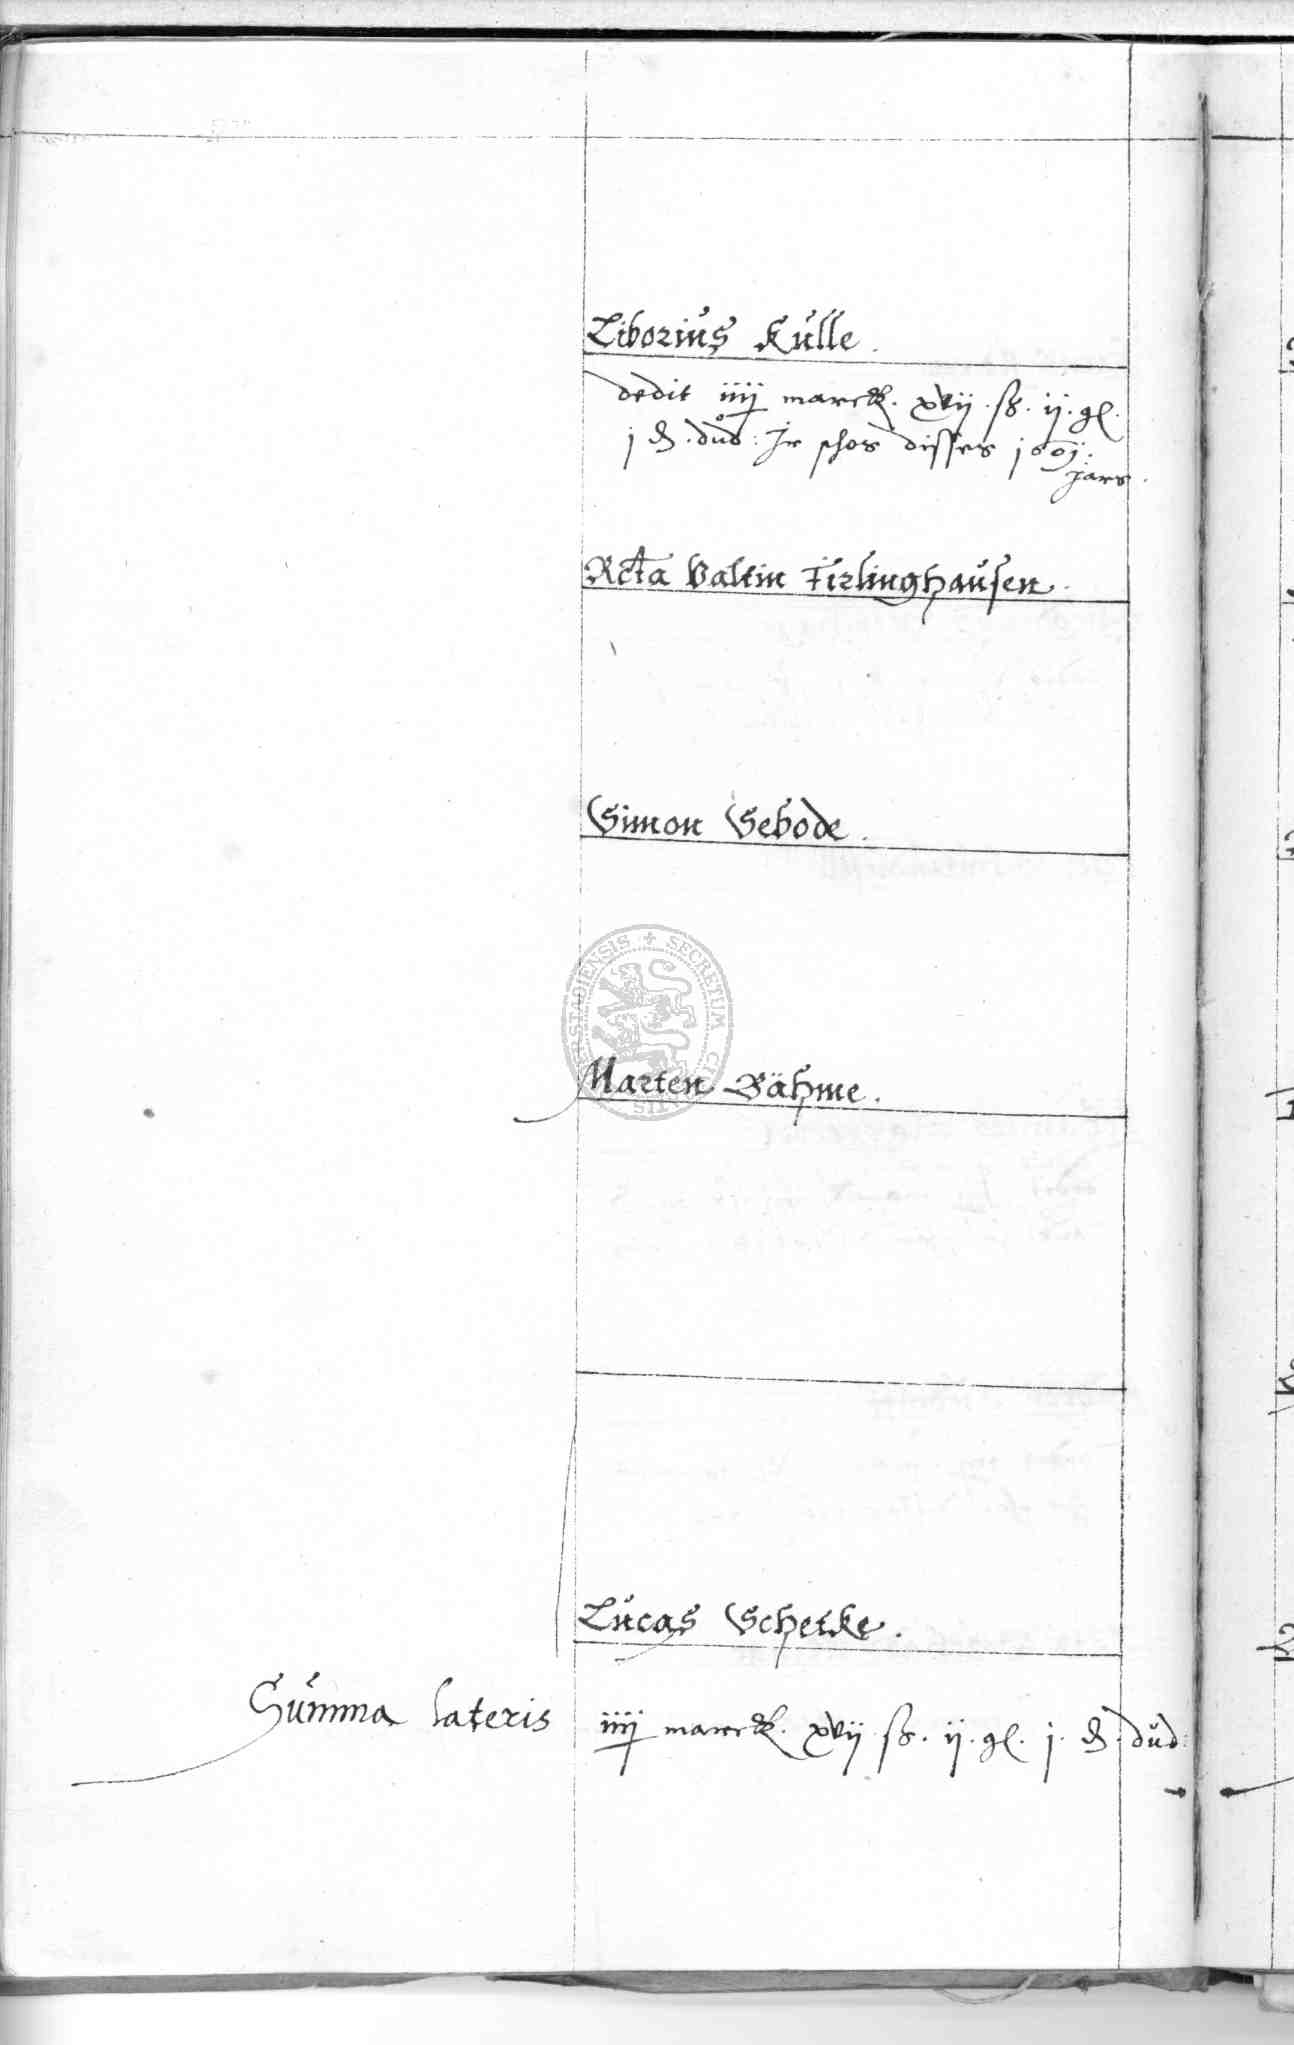 Liborius Külle.
dedit iiij marck. xvij. ß. ij. gl.
j ₰. dud: Ir schos disses 1601.
jars.
Rcta Valtin Firlinghausen.
Simon Sebode.
SECRETUM
Marten Bähme.
Lucas Schetke.
Summa lateris iiij marck. xvij. ß. ij. gl. j. ₰. dud: